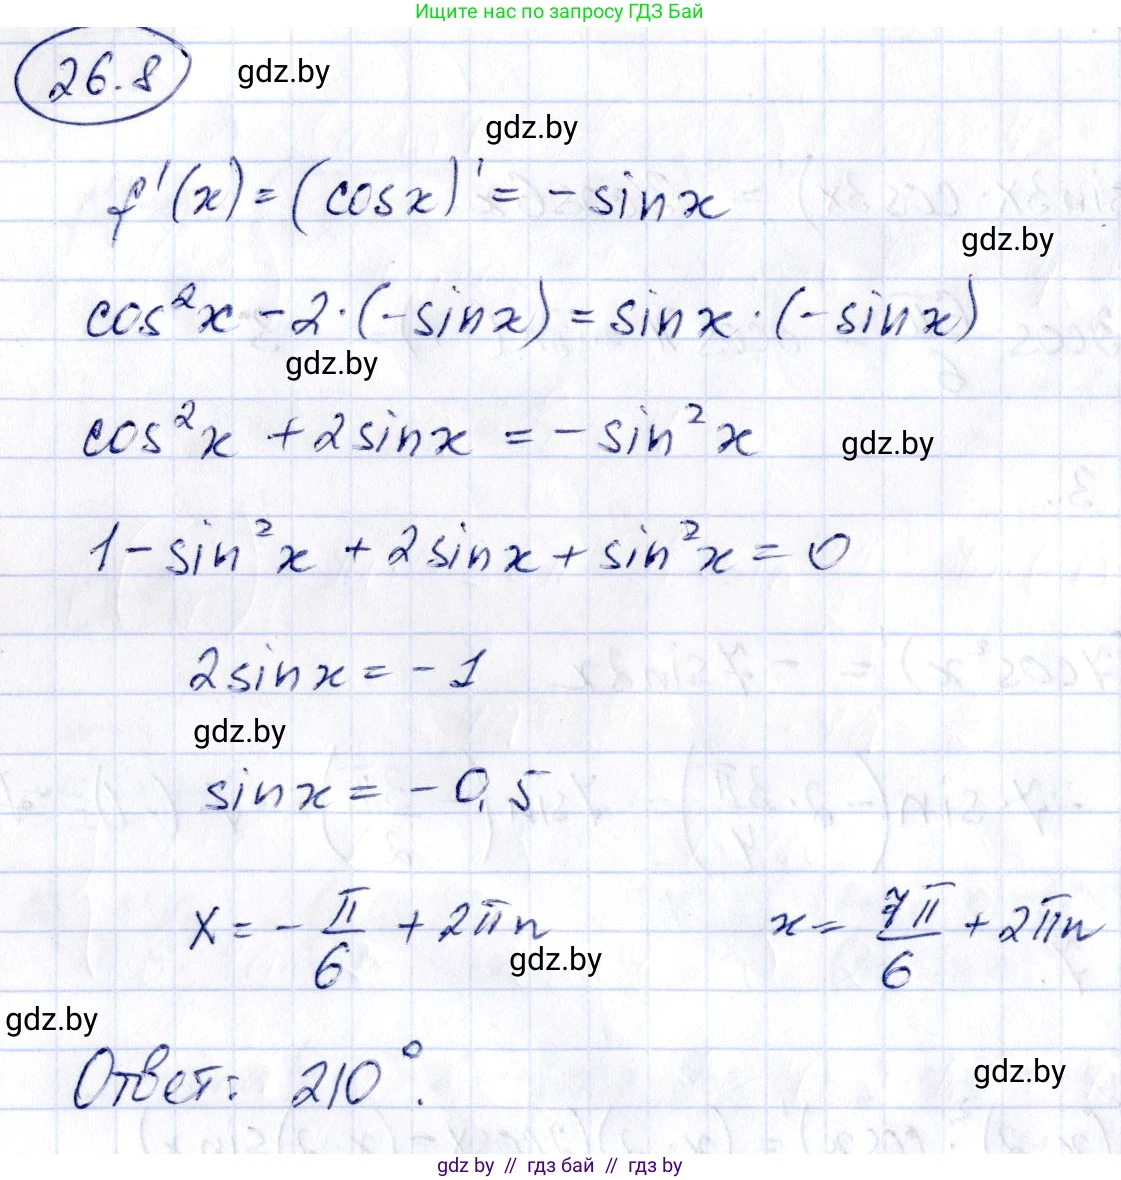 Ищите нас по запросу ГДЗ Бай
26.8 gdz.by
gdz.by
f'(x) = (cosx)' = -sinx
gdz.by
cos²x - 2·(-sinx) = sinx·(-sinx)
gdz.by
cos²x + 2sinx = -sin²x gdz.by
1 - sin²x + 2sinx + sin²x = 0
2sinx = -1
gdz.by
sinx = -0,5
x = -π/6 + 2πn x = 7π/6 + 2πn
gdz.by
gdz.by
Ответ: 210°.
gdz.by
gdz by // гдз бай // гдз by